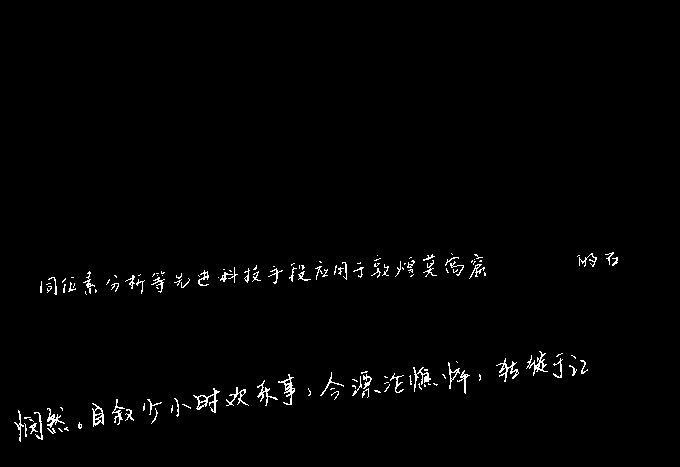 同位素分析等先进科技手段应用于敦煌莫高窟 的石
悯然。自叙少小时欢乐事，今漂沦憔悴，转徙于江